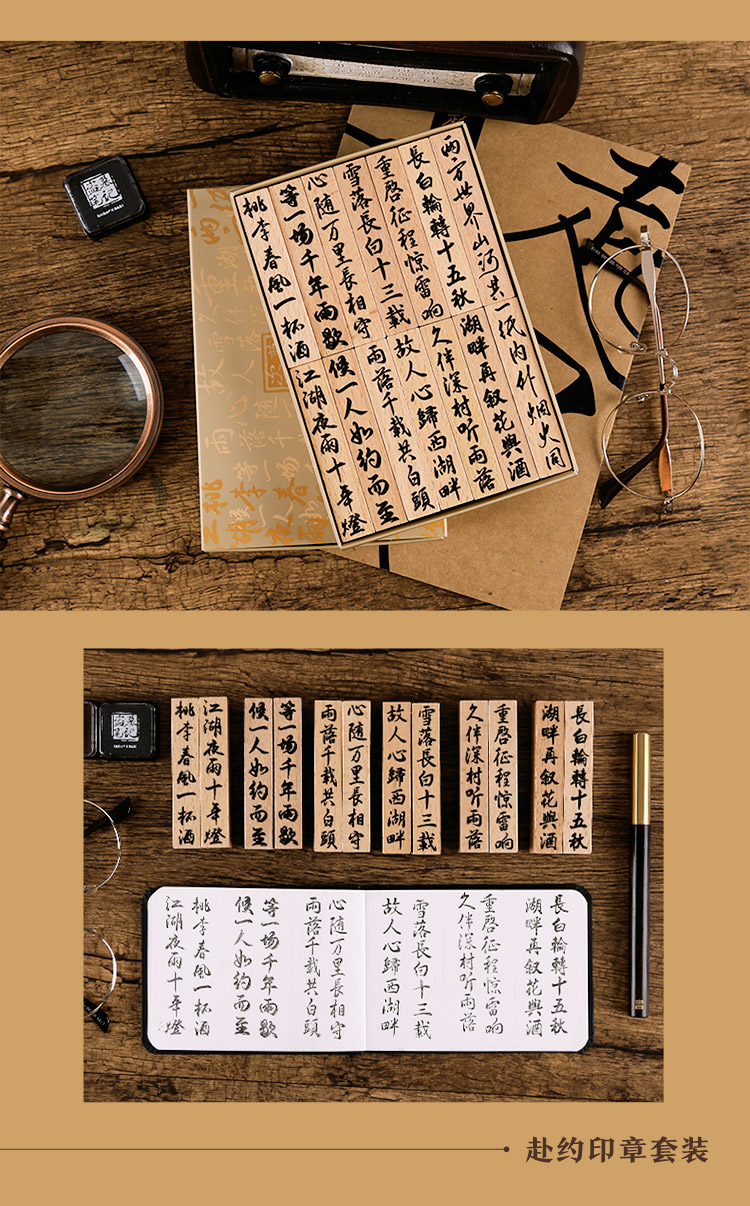 两方世界山河共
長白輪轉十五秋
重啓征程惊雷响
雪落長白十三載
心隨万里長相守
等一场千年雨歇
桃李春風一杯酒
一纸内外烟火同
湖畔再叙花與酒
久伴深村听雨落
故人心歸西湖畔
雨落千载共白頭
候一人如约而至
江湖夜雨十年燈
長白輪轉十五秋
湖畔再叙花與酒
重啓征程惊雷响
久伴深村听雨落
雪落長白十三載
故人心歸西湖畔
心隨万里長相守
雨落千载共白頭
等一场千年雨歇
候一人如约而至
江湖夜雨十年燈
桃李春風一杯酒
長白輪轉十五秋
湖畔再叙花與酒
重啓征程惊雷响
久伴深村听雨落
雪落長白十三載
故人心歸西湖畔
心隨万里長相守
雨落千载共白頭
等一场千年雨歇
候一人如约而至
桃李春風一杯酒
江湖夜雨十年燈
赴约印章套装